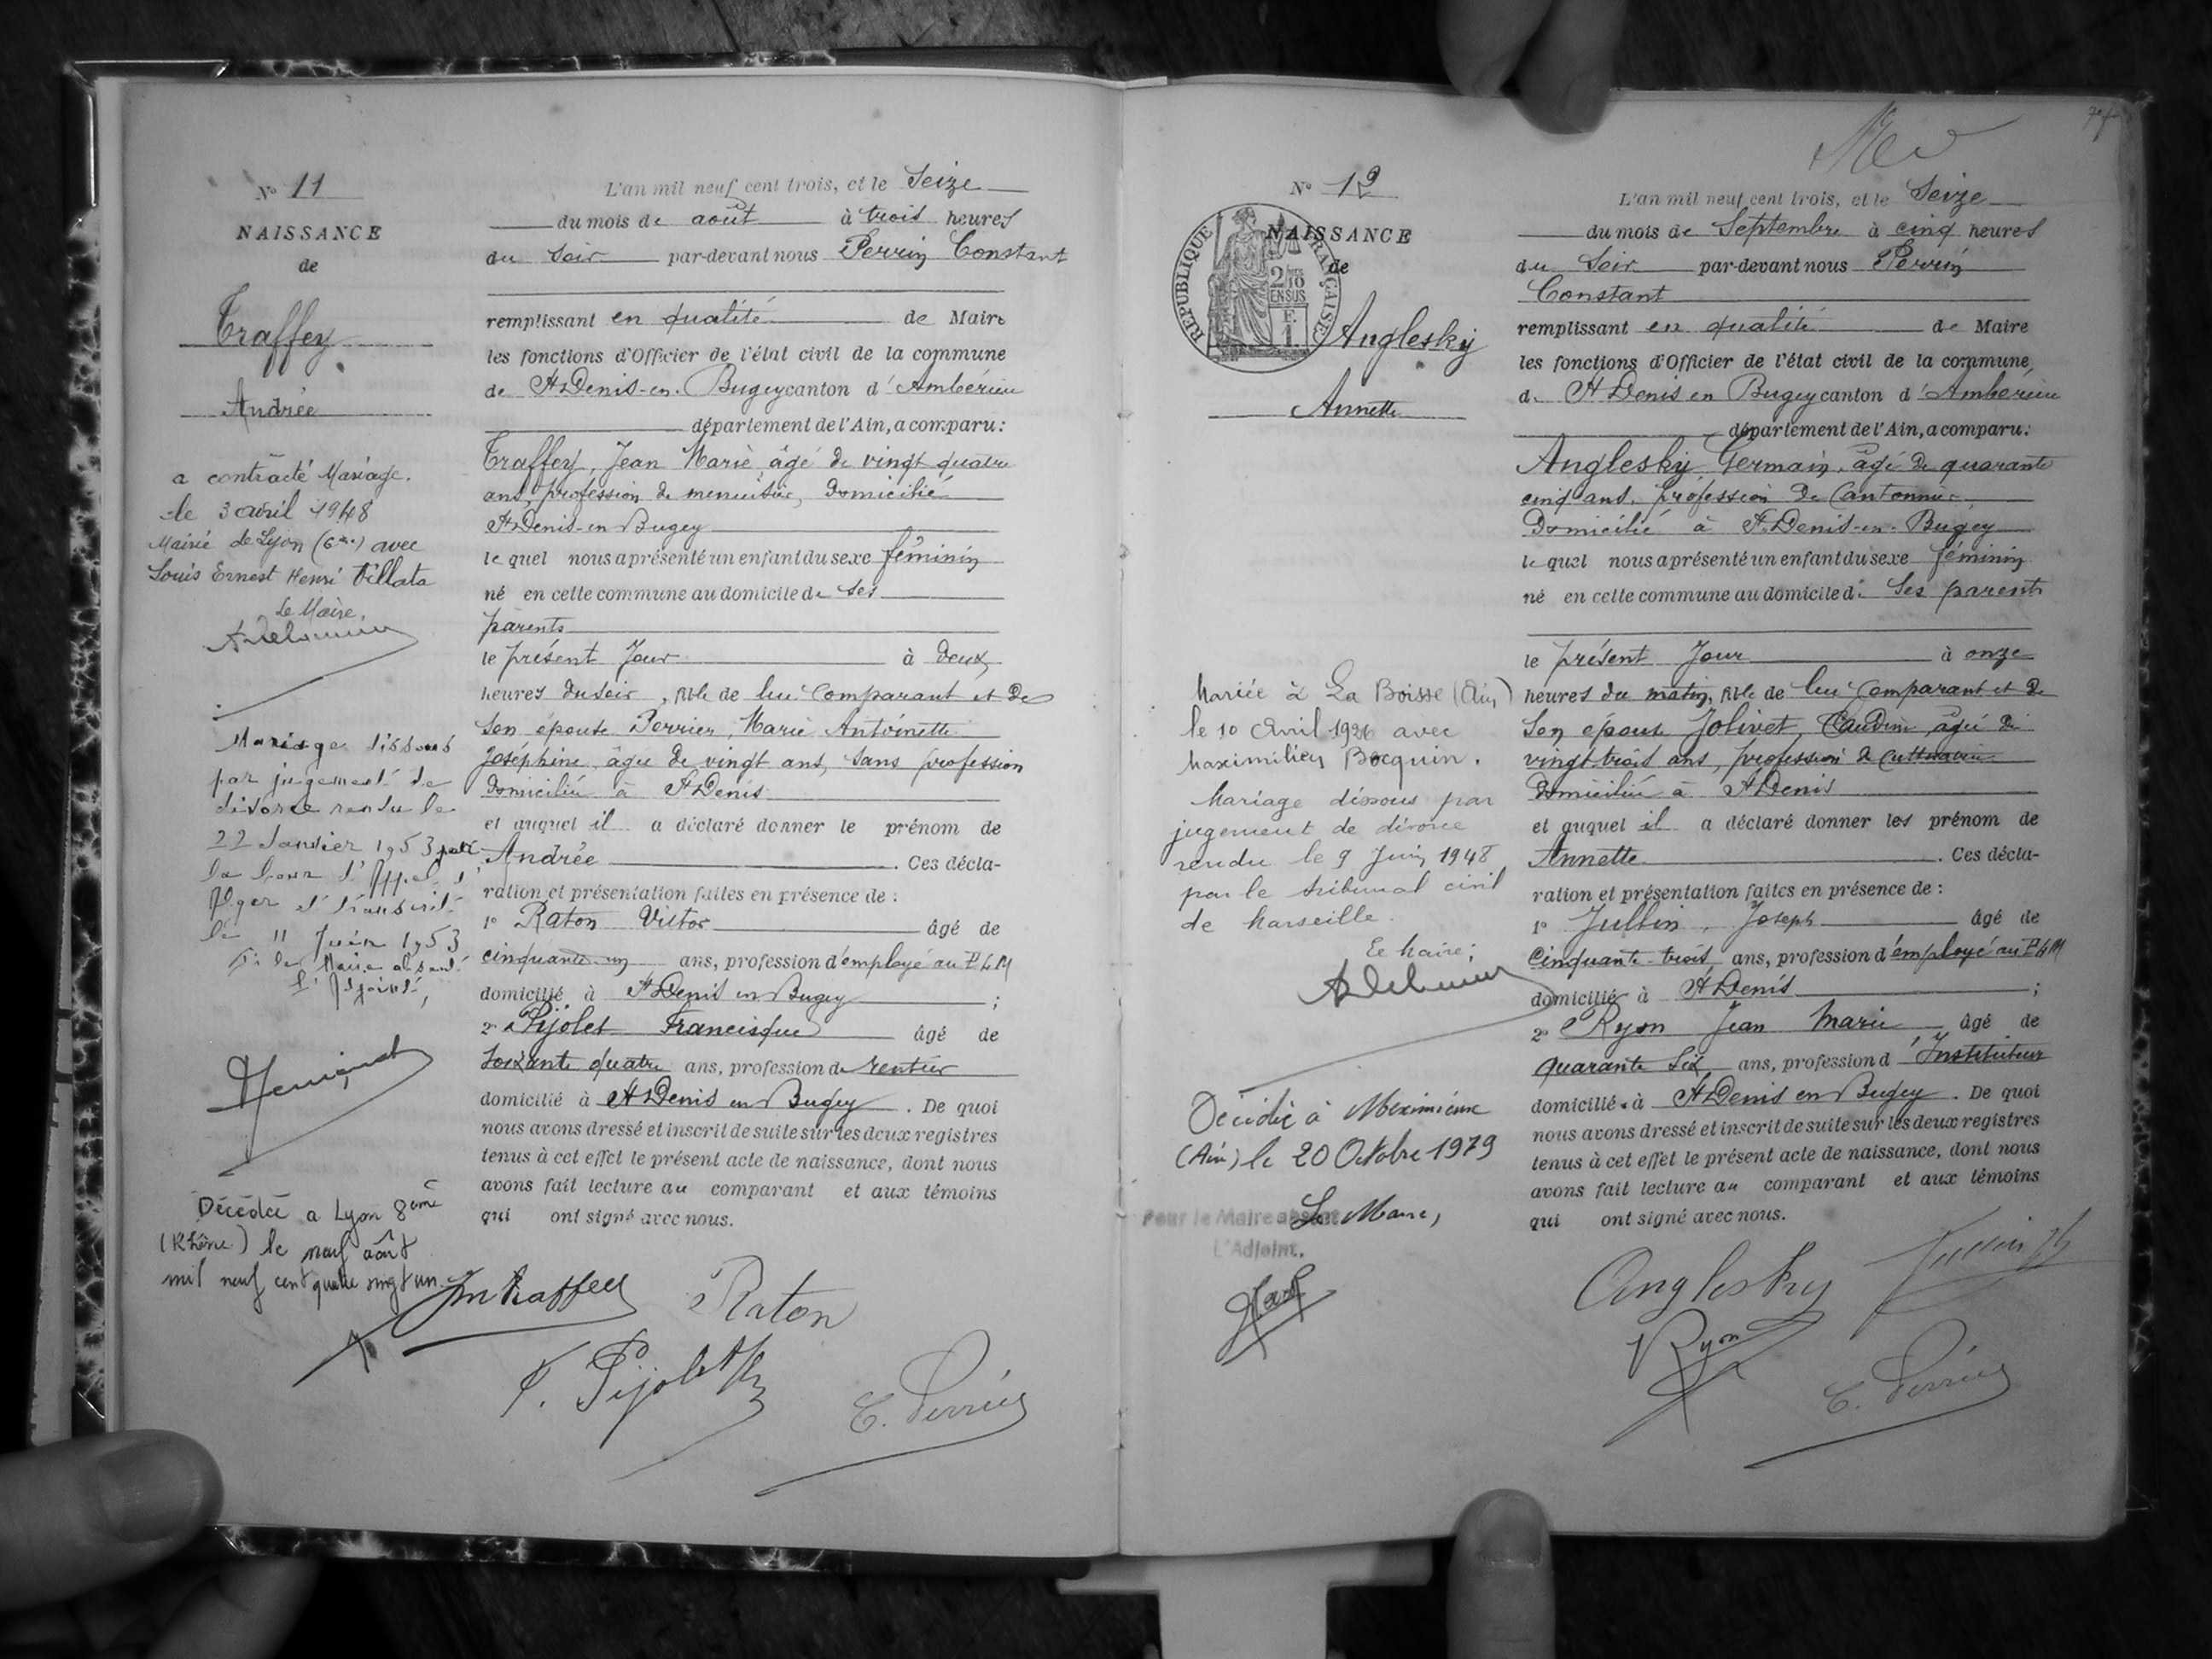 N° 11
NAISSANCE
de
Traffey
Andrée
a contracté Mariage.
le 3 avril 1948
Mairie de Lyon (6me) avec
Louis Ernest Henri Villata
Le Maire,
Mariage dissous
par jugement de
divorce rendu le
22 Janvier 1953 par
la Cour d'Appel d'
Alger et transcrit
le 11 Juin 1953
Le Maire absent
L'Adjoint,
Décédée a Lyon 8ème
(Rhône) le neuf août
mil neuf cent quatre vingt un
L'an mil neuf cent trois, et le Seize
du mois de août à trois heures
du Soir par-devant nous Perrin Constant
remplissant en qualité de Maire
les fonctions d'Officier de l'état civil de la commune
de St Denis-en-Bugey canton d'Ambérieu
département de l'Ain, a comparu:
Traffey, Jean Marie, âgé de vingt quatre
ans, profession de menuisier, domicilié
St Denis-en-Bugey
le quel nous a présenté un enfant du sexe féminin
né en cette commune au domicile de ses
parents
le présent Jour à deux
heures du soir, fille de lui comparant et de
Son épouse Perrier, Marie Antoinette
Joséphine, âgée de vingt ans, sans profession
domiciliée à St Denis
et auquel il a déclaré donner le prénom de
Andrée. Ces décla-
ration et présentation faites en présence de:
1° Raton Victor âgé de
cinquante-un ans, profession d'employé au P L M
domicilié à St Denis en Bugey;
2° Pijolet Francisque âgé de
soixante quatre ans, profession de rentier
domicilié à St Denis en Bugey. De quoi
nous avons dressé et inscrit de suite sur les deux registres
tenus à cet effet le présent acte de naissance, dont nous
avons fait lecture au comparant et aux témoins
qui ont signé avec nous.
Jm traffey Raton
F. Pijolet
C. Perrin
N° 12
NAISSANCE
de
RÉPUBLIQUE FRANÇAISE
Anglesky
Annette
Mariée à La Boisse (Ain)
le 10 Avril 1926 avec
Maximilien Bocquin.
Mariage dissous par
jugement de divorce
rendu le 9 Juin 1948
par le tribunal civil
de Marseille.
Le Maire;
Décédée à Meximieux
(Ain) le 20 Octobre 1979
Le Maire,
Pour le Maire absent
L'Adjoint.
L'an mil neuf cent trois, et le Seize
du mois de Septembre à cinq heures
du Soir par-devant nous Perrin
Constant
remplissant en qualité de Maire
les fonctions d'Officier de l'état civil de la commune
de St Denis en Bugey canton d'Ambérieu
département de l'Ain, a comparu:
Anglesky Germain, âgé de quarante
cinq ans, profession de Cantonnier
domicilié à St Denis-en-Bugey
le quel nous a présenté un enfant du sexe féminin
né en cette commune au domicile de ses parents
le présent Jour à onze
heures du matin, fille de lui comparant et de
Son épouse Jolivet, Claudine âgée de
vingt trois ans, profession de
domiciliée à St Denis
et auquel il a déclaré donner les prénom de
Annette. Ces décla-
ration et présentation faites en présence de:
1° Jullin, Joseph âgé de
Cinquante-trois ans, profession d'employé au P L M
domicilié à St Denis;
2° Ryon Jean Marie âgé de
quarante Six ans, profession d'Instituteur
domicilié à St Denis en Bugey. De quoi
nous avons dressé et inscrit de suite sur les deux registres
tenus à cet effet le présent acte de naissance, dont nous
avons fait lecture au comparant et aux témoins
qui ont signé avec nous.
Anglesky Jullin Jh
Ryon
C. Perrin